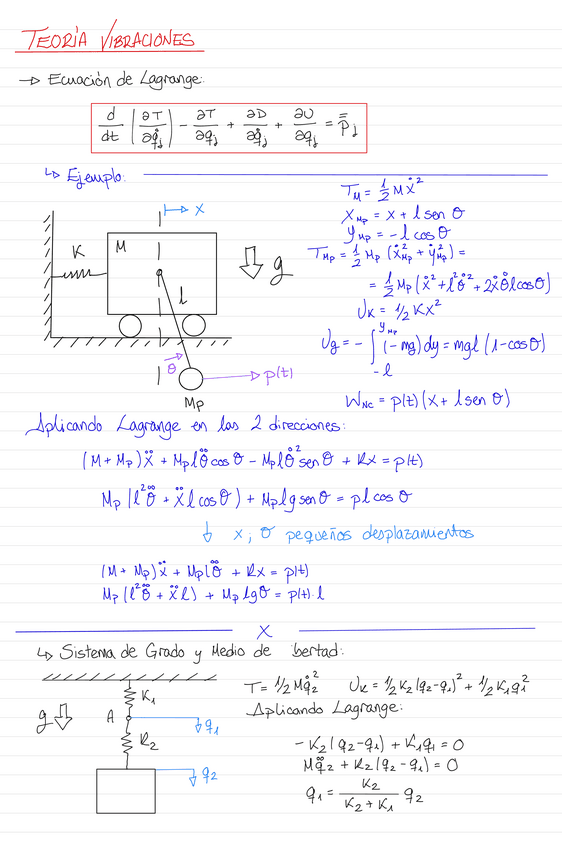 TEORÍA VIBRACIONES
→ Ecuación de Lagrange:
d/dt (∂T/∂q̇j) - ∂T/∂qj + ∂D/∂q̇j + ∂U/∂qj = p̿j
↳ Ejemplo:
T_M = 1/2 M ẋ²
X_Mp = x + l sen θ
y_Mp = - l cos θ
T_Mp = 1/2 Mp (ẋ²_Mp + ẏ²_Mp) =
= 1/2 Mp (ẋ² + l²θ̇² + 2ẋθ̇l cosθ)
U_K = 1/2 Kx²
U_g = - ∫_{-l}^{y_Mp} (-mg) dy = mgl (1-cosθ)
W_NC = p(t) (x + l sen θ)
x
K
M
l
g
θ
p(t)
Mp
Aplicando Lagrange en las 2 direcciones:
(M + Mp) ẍ + Mp l θ̈ cos θ - Mp l θ̇² sen θ + Kx = p(t)
Mp (l²θ̈ + ẍ l cos θ) + Mp l g sen θ = p l cos θ
↓ x; θ pequeños desplazamientos
(M + Mp) ẍ + Mp l θ̈ + Kx = p(t)
Mp (l²θ̈ + ẍ l) + Mp l g θ = p(t) · l
x
↳ Sistema de Grado y Medio de ibertad:
K1
g
A
q1
K2
q2
T = 1/2 M q̇2² U_K = 1/2 K2 (q2-q1)² + 1/2 K1 q1²
Aplicando Lagrange:
- K2 (q2-q1) + K1 q1 = 0
M q̈2 + K2 (q2-q1) = 0
q1 = K2/(K2 + K1) q2